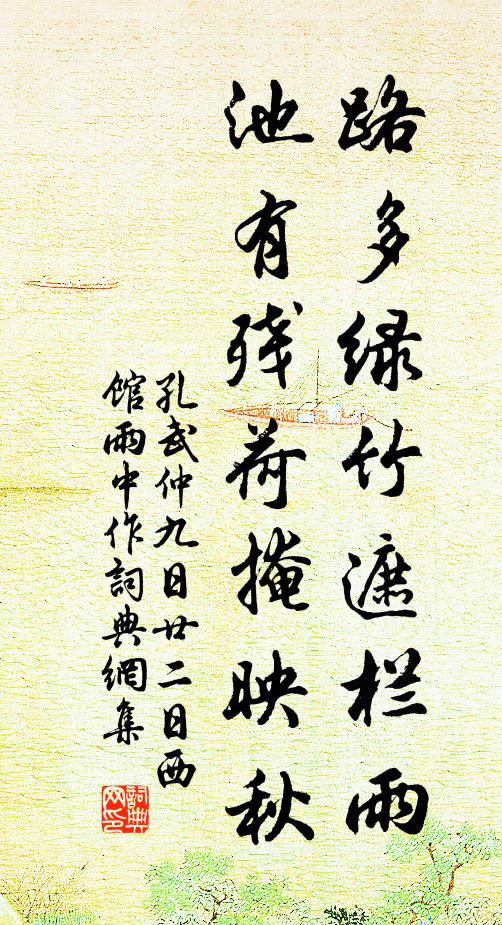 路多绿竹遮栏雨
池有残荷掩映秋
孔武仲九日廿二日西
馆雨中作詞典網集
詞典网印